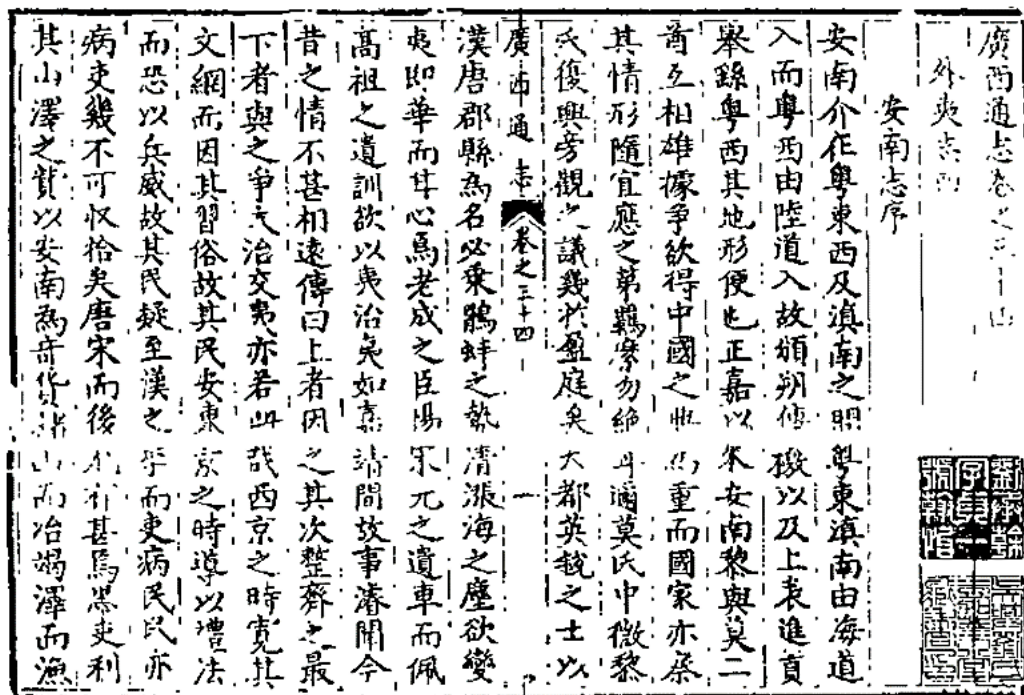 廣西通志卷之三十四
外夷志四
安南志序
安南介在粵東西及滇南之間粵東滇南由海道
入而粵西由陸道入故頒朔傳檄以及上表進貢
舉繇粵西其地形便也正嘉以來安南黎與莫二
酋互相雄據爭欲得中國之典為重而國家亦察
其情形隨宜應之第羈縻勿絕耳邇莫氏中微黎
氏復興旁觀之議幾於盈庭矣大都英銳之士以
廣西通志 卷之三十四 一
漢唐郡縣為名必乘鷸蚌之勢清漲海之塵欲變
夷即華而甘心焉老成之臣惕宋元之遺車而佩
高祖之遺訓欲以夷治夷如嘉靖間故事濬聞今
昔之情不甚相遠傳曰上者因之其次整齊之最
下者與之爭夫治交夷亦若此哉西京之時寬其
文網而因其習俗故其民安東京之時導以禮法
而恐以兵威故其民疑至漢之季而吏病民民亦
病吏幾不可收拾矣唐宋而後 甚焉墨吏利
其山澤之貨以安南為奇貨 山而冶竭澤而漁